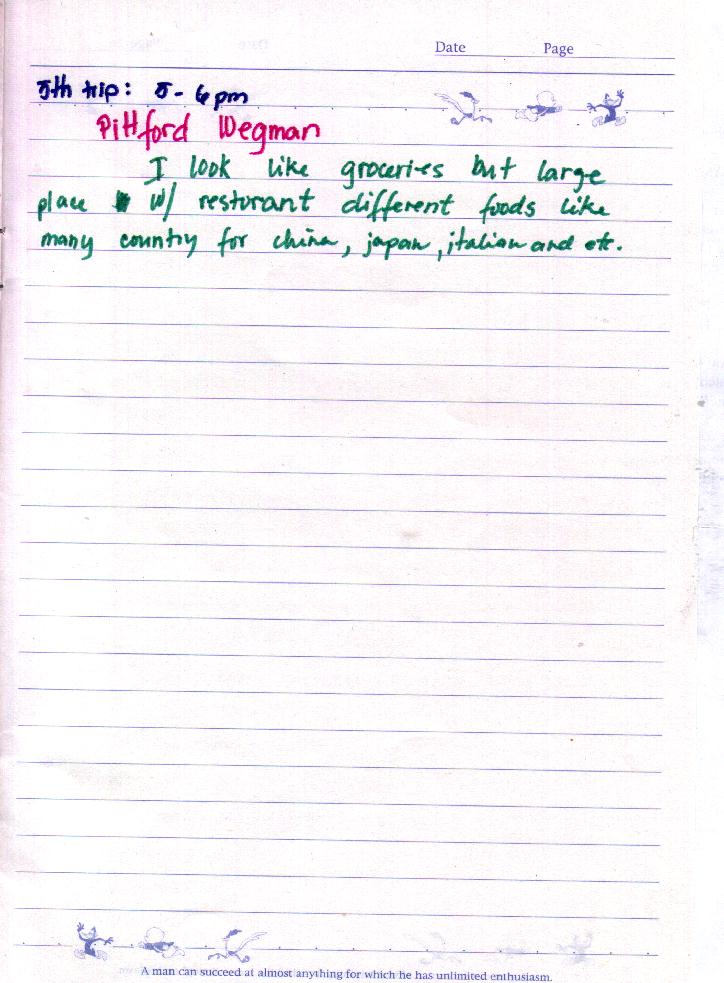 Date Page
5th trip: 5 - 6 pm
Pittford Wegman
I look like groceries but large
place w/ resturant different foods like
many country for china, japan, italian and etc.
A man can succeed at almost anything for which he has unlimited enthusiasm.